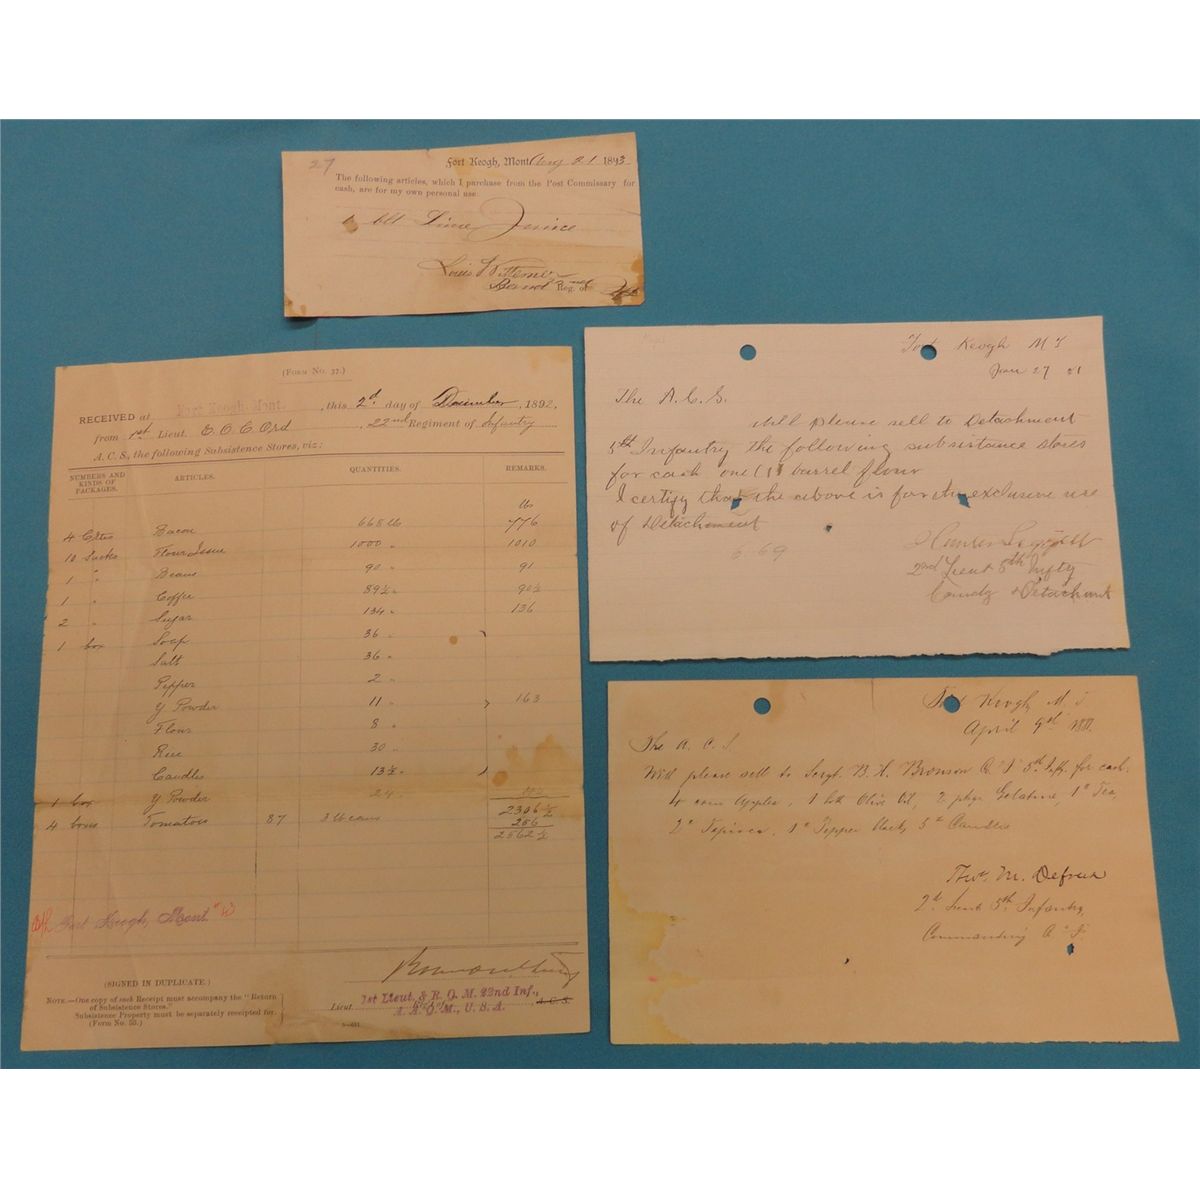 27
Fort Keogh, Mont. Aug 21 1893
The following articles, which I purchase from the Post Commissary for
cash, are for my own personal use
blt Lime Juice
Louis
Band 22nd Reg. of Inf
(FORM NO. 37.)
RECEIVED at Fort Keogh, Mont. , this 2d. day of December , 1892,
from 1st Lieut. E. O. C. Ord , 22nd Regiment of Infantry
A. C. S., the following Subsistence Stores, viz:
NUMBERS AND KINDS OF PACKAGES. ARTICLES. QUANTITIES. REMARKS.
lb
4 Crtes Bacon 668 lb 776
10 Sacks Flour Issue 1000 " 1010
1 " Beans 90 " 91
1 " Coffee 89½ " 90½
2 " Sugar 134 " 136
1 box Soap 36 "
Salt 36 "
Pepper 2 "
Y Powder 11 " 163
Flour 8 "
Rice 30 "
Candles 13½ "
1 box Y Powder 24 "
4 boxes Tomatoes 87 3 lb cans 2306½
256
2562½
Fort Keogh, Mont.
(SIGNED IN DUPLICATE.)
NOTE.—One copy of each Receipt must accompany the "Return
of Subsistence Stores."
Subsistence Property must be separately receipted for.
(Form No. 53.)
1st Lieut. & R. Q. M. 22nd Inf.,
Lieut. A. C. S.
A. A. Q. M., U. S. A.
Fort Keogh M T
Jan 27 81
The A. C. S.
Will please sell to Detachment
5th Infantry the following subsistance stores
for cash one (1) barrel flour
I certify that the above is for the exclusive use
of Detachment
6.69
Hunter Liggett
2nd Lieut 5th Infty
Comdg Detachment
Fort Keogh M. T.
April 9th 1881.
The A. C. S.
Will please sell to Sergt. B. H. Bronson Co "I" 5th Inff. for cash.
4 cans Apples, 1 bot Olive Oil, 2 pkgs Gelatine, 1# Tea,
2# Tapioca, 1# Pepper black, 5# Candles
Thos. M. Defrees
2d. Lieut 5th Infantry,
Commanding Co "I".